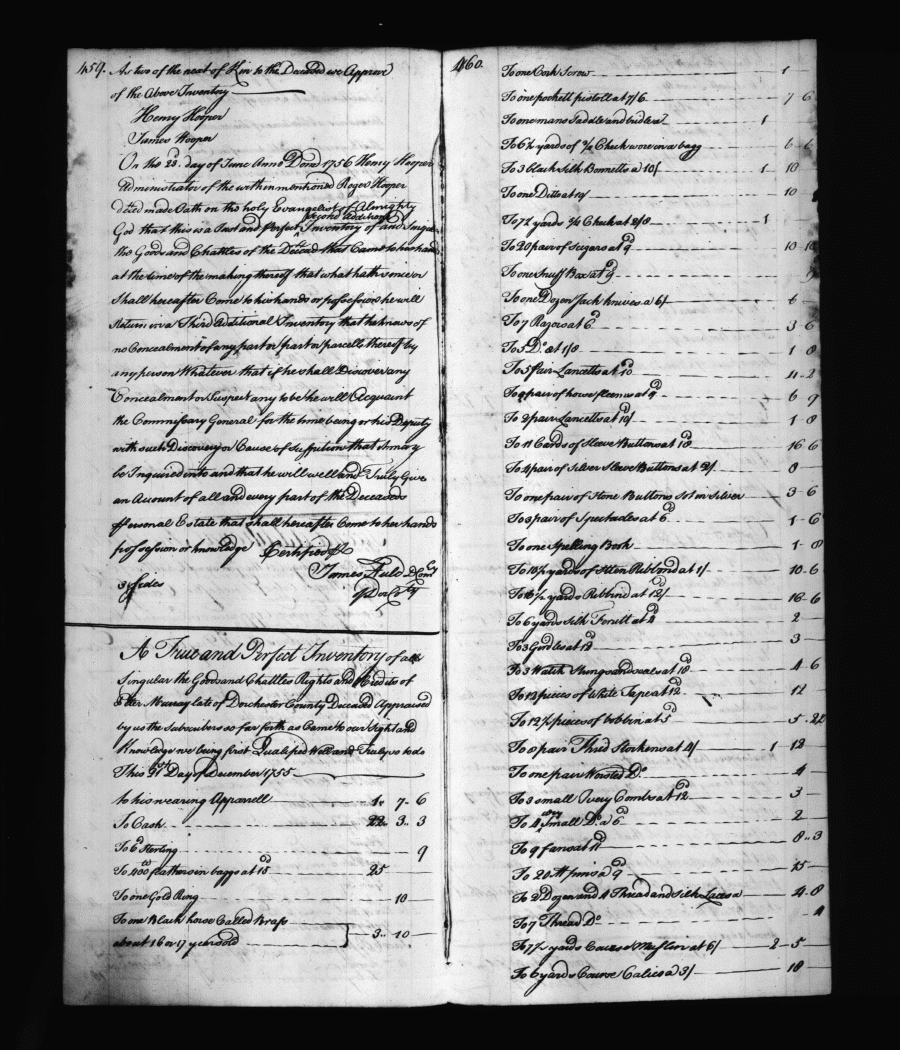 459. As two of the next of Kin to the Deceased we Approve
of the Above Inventory
Henry Hooper
James Hooper
On the 23.d day of June Anno Dom 1756 Henry Hooper
Administrator of the within mentioned Roger Hooper
dec.ed made Oath on the holy Evangelist of Almighty
second additional
God that this is a Just and perfect Inventory of and Singular
the Goods and Chattles of the Deceased that Came to her hands
at the time of the making thereof that what hath since or
Shall hereafter Come to his hands or possession he will
Return in a Third Additional Inventory that he knows of
no Concealment of any part or part or parcell thereof by
any person Whatever that if he shall Discover any
Concealment or Suspect any to be he will Acquaint
the Commissary General for the time being or his Deputy
with such Discovery or Cause of Suspition that it may
be Inquired into and that he will well and Truly Give
an Account of all and every part of the Deceaseds
Personal Estate that shall hereafter Come to her hands
possession or knowledge Certified p
James Auld D Com.y
of Dor Co.ty
3 Sides
A True and Perfect Inventory of all
Singular the Goods and Chattles Rights and Credits of
Peter Murray late of Dorchester County Deceased Appraised
by us the Subscribers so far forth as Came to our Sight and
Knowledge we being first Qualified Well and Truly so to do
This Day of December 1755
to his wearing Apparrell 1. 7. 6
To Cash 22. 3. 3
To 6.d Sterling 9
To 400 w feathers in baggs at 15.d 25
To one Gold Ring 10
To one Black horse Called Brass
about 16 or 17 years old 3.. 10
460.
To one Cork Screw 1
To one pockett pistoll at 7/6 7 6
To one mans Saddle and bridle at 1
To 6½ yards of ¾ Check wove in a bagg 6 6
To 3 black Silk Bonnetts a 10/ 1 10
To one Ditto at 10/ 10
To 7½ yards ¾ Check at 2/8 1
To 20 pair of at 10 10
To one Snuff Box at 9.d 9
To one Dozen Jack knives a 6/ 6
To 7 Razors at 6.d 3 6
To 5 D.o at 1/8 1 8
To 5 fair Lancetts at 10.d 4 2
To 9 pair of horse fleems at 9.d 6 9
To 2 pair Lancetts at 10/ 1 8
To 11 Cards of Sleve Buttons at 18.d 16 6
To 4 pair of Silver Sleve Buttons at 2/ 8
To one pair of Stone Buttons Set in Silver 3 6
To 3 pair of Spectacles at 6.d 1 6
To one Spelling Book 1 8
To 10½ yards of Stten Ribbind at 1/ 10 6
To 16½ yards Ribbind at 12/ 16 6
To 6 yards Silk Ferritt at 4.d 2
To 3 Girdles at 12.d 3
To 3 Watch Strings and seals at 18.d 4 6
To 12 pieces of White Tape at 12.d 12
To 12½ pieces of bobbin at 5.d 5. 2½
To 8 pair Thred Stockens at 4/ 1 12
To one pair Worsted D.o 4
To 3 small Ivery Combs at 12.d 3
To 4 very Small D.o a 6.d 2
To 9 fans at 11.d 8.. 3
To 20 M pins a 9.d 15
To 2 Dozen and 4 Thread and Silk Laces a 4. 8
To 7 Thread D.o
To 7½ yards Course Muslin at 6/ 2 5
To 6 yards Course Calico a 3/ 18